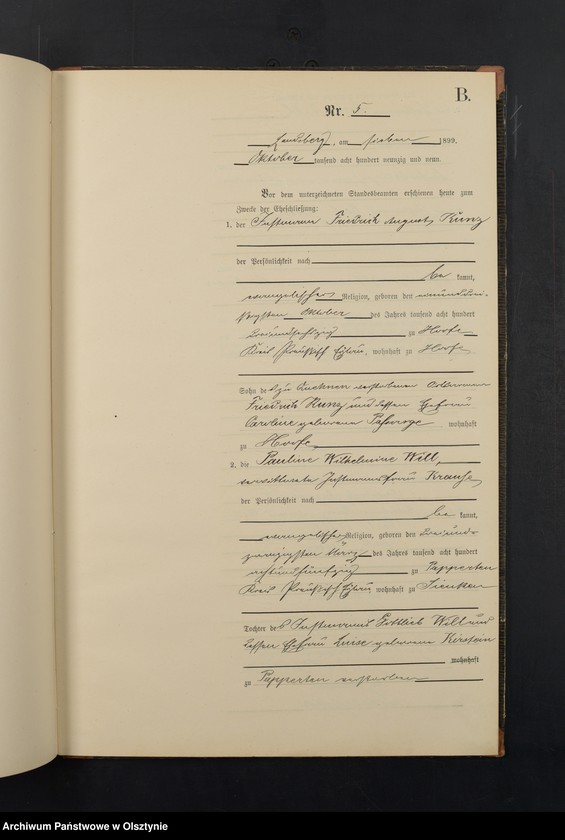 B.
Nr. 5.
Landsberg, am sieben 1899,
Oktober tausend acht hundert neunzig und neun.
Vor dem unterzeichneten Standesbeamten erschienen heute zum
Zwecke der Eheschließung:
1. der Instmann Friedrich August Kunz
der Persönlichkeit nach
be kannt,
evangelischer Religion, geboren den
Oktober des Jahres tausend acht hundert
zu Hoofe
Kreis Preußisch Eylau, wohnhaft zu Hoofe
Sohn des zu verstorbenen
Friedrich Kunz und dessen Ehefrau
Caroline geborene wohnhaft
zu Hoofe
2. die Pauline Wilhelmine Will,
verwittwete Instmannsfrau Krause
der Persönlichkeit nach
be kannt,
evangelischer Religion, geboren den dreiund-
zwanzigsten März des Jahres tausend acht hundert
achtundfünfzig zu Papperten
Kreis Preußisch Eylau, wohnhaft zu Sienken
Tochter des Instmanns Gottlieb Will und
dessen Ehefrau Luise geborene Kirstein
wohnhaft
zu Papperten verstorben
Archiwum Państwowe w Olsztynie